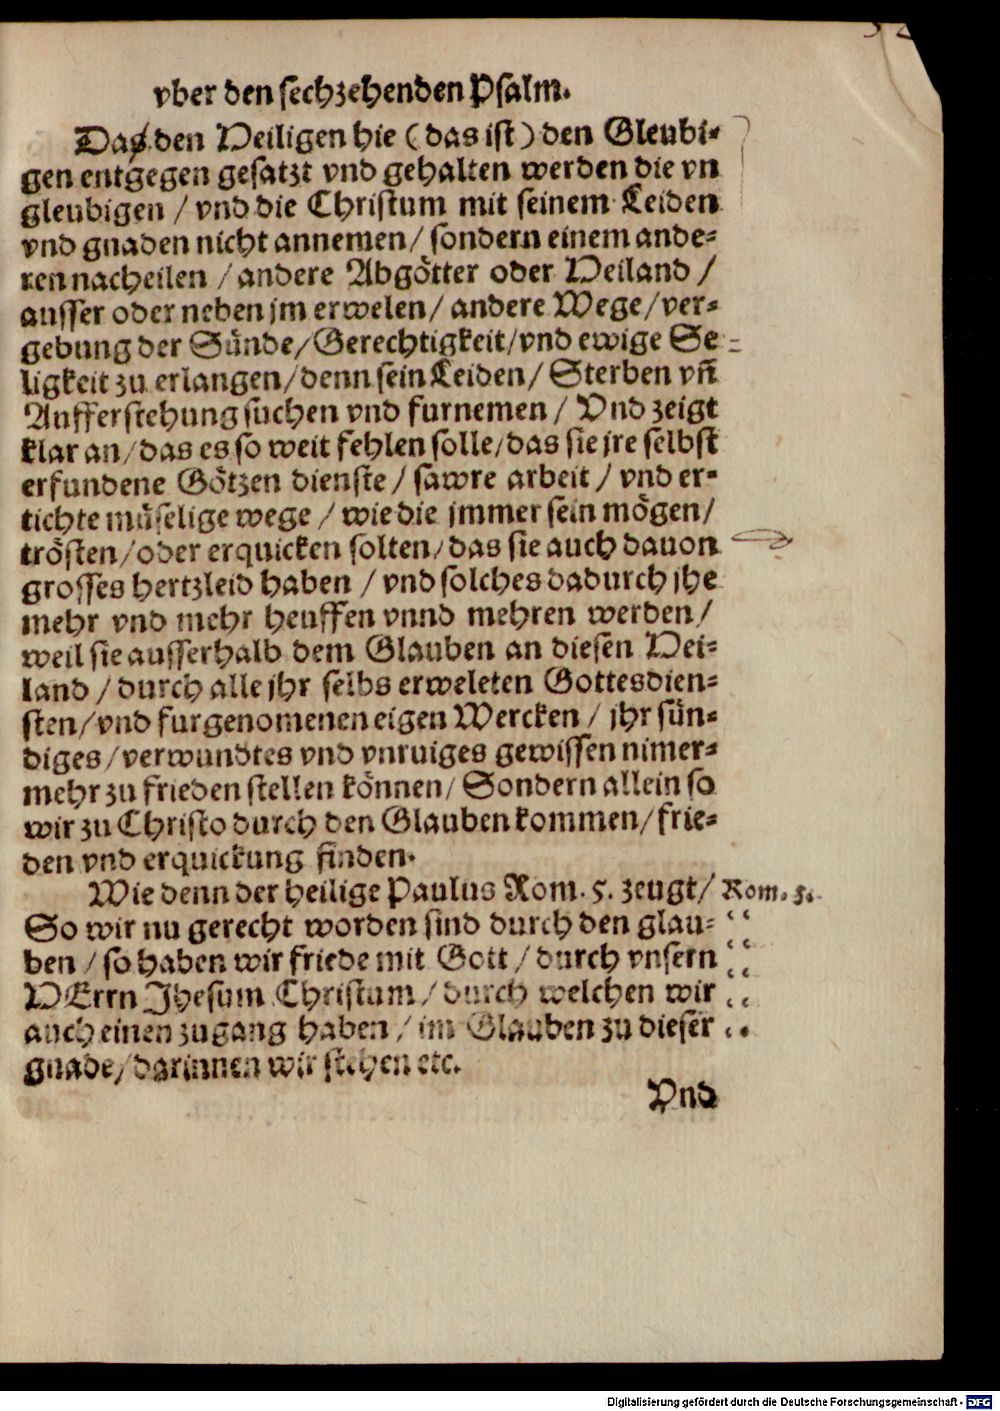 vber den sechzehenden Psalm.
Das den Heiligen hie (das ist) den Gleubi-
gen entgegen gesatzt vnd gehalten werden die vn
gleubigen / vnd die Christum mit seinem Leiden
vnd gnaden nicht annemen / sondern einem ande-
ren nacheilen / andere Abgötter oder Heiland /
ausser oder neben jm erwelen / andere Wege / ver-
gebung der Sünde / Gerechtigkeit / vnd ewige Se-
ligkeit zu erlangen / denn sein Leiden / Sterben vñ
Aufferstehung suchen vnd furnemen / Vnd zeigt
klar an / das es so weit fehlen solle / das sie jre selbst
erfundene Götzen dienste / sawre arbeit / vnd er-
tichte müselige wege / wie die jmmer sein mögen /
trösten / oder erquicken solten / das sie auch dauon
grosses hertzleid haben / vnd solches dadurch jhe
mehr vnd mehr heuffen vnnd mehren werden /
weil sie ausserhalb dem Glauben an diesen Hei-
land / durch alle jhr selbs erweleten Gottesdien-
sten / vnd furgenomenen eigen Wercken / jhr sün-
diges / verwundtes vnd vnruiges gewissen nimer-
mehr zu frieden stellen können / Sondern allein so
wir zu Christo durch den Glauben kommen / frie-
den vnd erquickung finden.
Wie denn der heilige Paulus Rom. 5. zeugt / Rom. 5.
So wir nu gerecht worden sind durch den glau-
ben / so haben wir friede mit Gott / durch vnsern
HErrn Jhesum Christum / durch welchen wir
auch einen zugang haben / im Glauben zu dieser
gnade / darinnen wir stehen etc.
Vnd
Digitalisierung gefördert durch die Deutsche Forschungsgemeinschaft - DFG